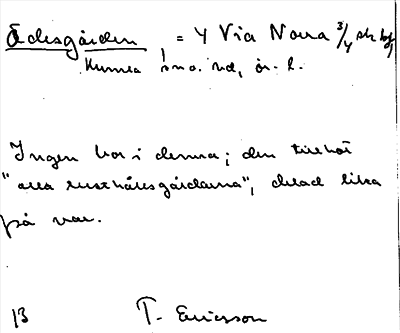 Ödesgården, = Y Via Nova 3/4 sk
Kumla sn o. hd, ör. l.
Ingen bor i denna; den tillhör
"alla rusthållsgårdarna", delad lika
på var.
13 T. Ericsson